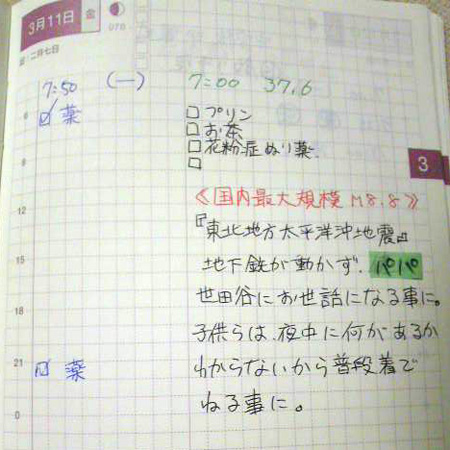 3月11日 金
078
旧 二月七日
7:50 (一) 7:00 37.6
6 薬
プリン
お茶
花粉症ぬり薬.
9
3
12
《国内最大規模 M8.8》
『東北地方太平洋沖地震』
15 地下鉄が動かず、パパ
世田谷にお世話になる事に。
18
子供らは、夜中に何があるか
21 薬 わからないから普段着で
0 ねる事に。